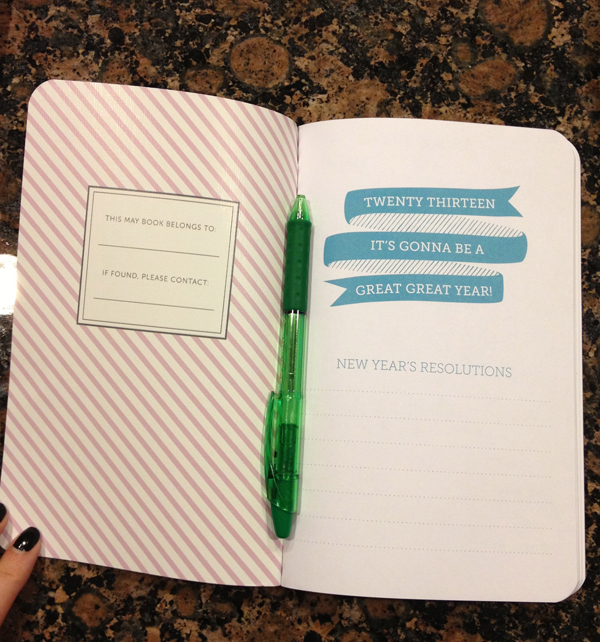 THIS MAY BOOK BELONGS TO:
IF FOUND, PLEASE CONTACT:
TWENTY THIRTEEN
IT'S GONNA BE A
GREAT GREAT YEAR!
NEW YEAR'S RESOLUTIONS